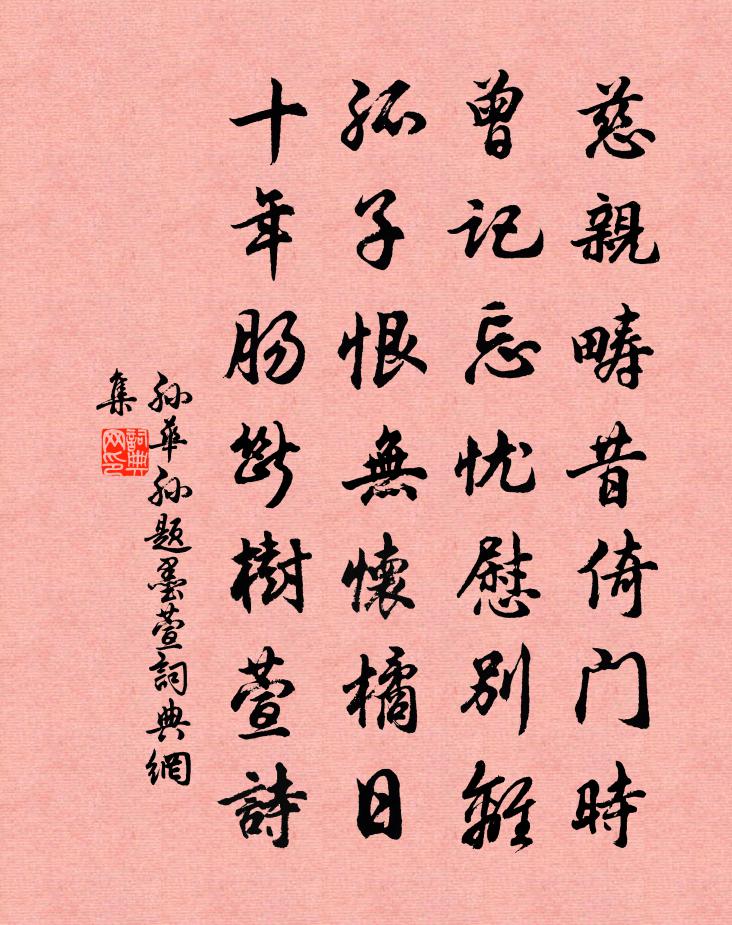 慈親疇昔倚门時
曾记忘忧慰别離
孤子恨無懷橘日
十年肠斷樹萱詩
孙華孙題墨萱詞典網
集
詞典
网印